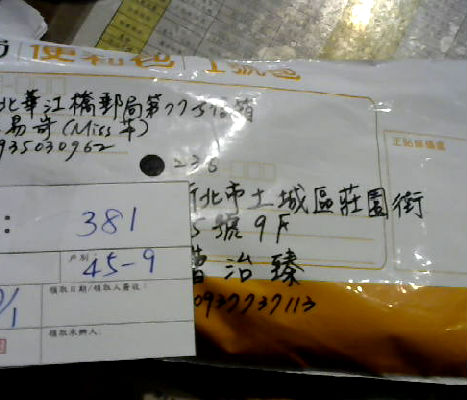 便利包 1號包
北華江橋郵局第775信箱
易奇(Miss 革)
935030962
236
新北市土城區莊園街
5號9F
曹治臻
0937737113
正貼郵票處
: 381
戶別: 45-9
領取日期/領取人簽收:
領取未辦人: